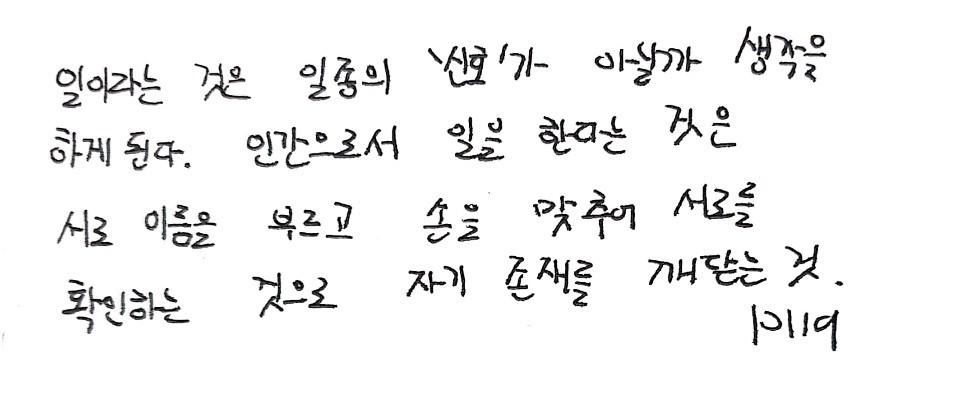 일이라는 것은 일종의 '신호'가 아닐까 생각을
하게 된다. 인간으로서 일을 한다는 것은
서로 이름을 부르고 손을 맞추어 서로를
확인하는 것으로 자기 존재를 깨닫는 것.
10119